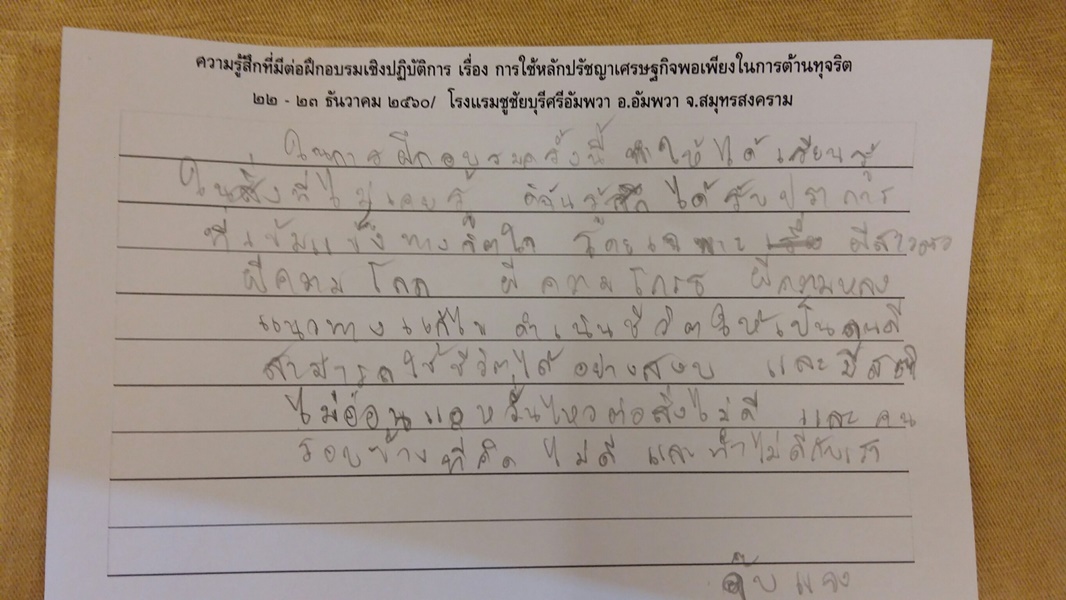 ความรู้สึกที่มีต่อฝึกอบรมเชิงปฏิบัติการ เรื่อง การใช้หลักปรัชญาเศรษฐกิจพอเพียงในการต้านทุจริต
๒๒ - ๒๓ ธันวาคม ๒๕๖๐/ โรงแรมชูชัยบุรีศรีอัมพวา อ.อัมพวา จ.สมุทรสงคราม
ในการฝึกอบรมครั้งนี้ ทำให้ได้เรียนรู้
ในสิ่งที่ไม่เคยรู้ ดิฉันรู้สึกได้รับปราการ
ที่เข้มแข็งทางจิตใจ โดยเฉพาะ ผีสาวตัว
ผีความโลภ ผีความโกรธ ผีความหลง
แนวทางแก้ไข ดำเนินชีวิตให้เป็นคนดี
สามารถใช้ชีวิตได้อย่างสงบ และมีสติ
ไม่อ่อนแอหวั่นไหวต่อสิ่งไม่ดี และคน
รอบข้างที่คิดไม่ดี และทำไม่ดีกับเรา